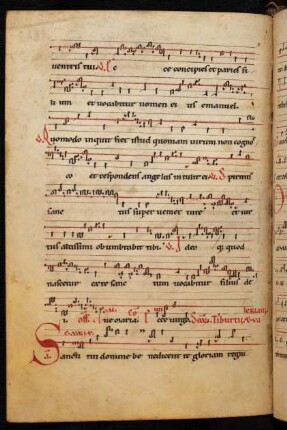 uentris tui. V. Ec ce concipies et paries fi
lium et uocabitur nomen ei us emanuel.
V. Quomodo inquit fiet istud quoniam uirum non cogno
co et respondens angelus intulit ei. V. Spiritus
sanc tus super ueniet in te et uir
tus altissimi obumbrabit tibi. V. Ideo q quod
nascetur ex te sanc tum uocabitur filius de
i. off. Aue maria. Co Ecce uirgo.
Sancti tui domine be nedicent te gloriam regni